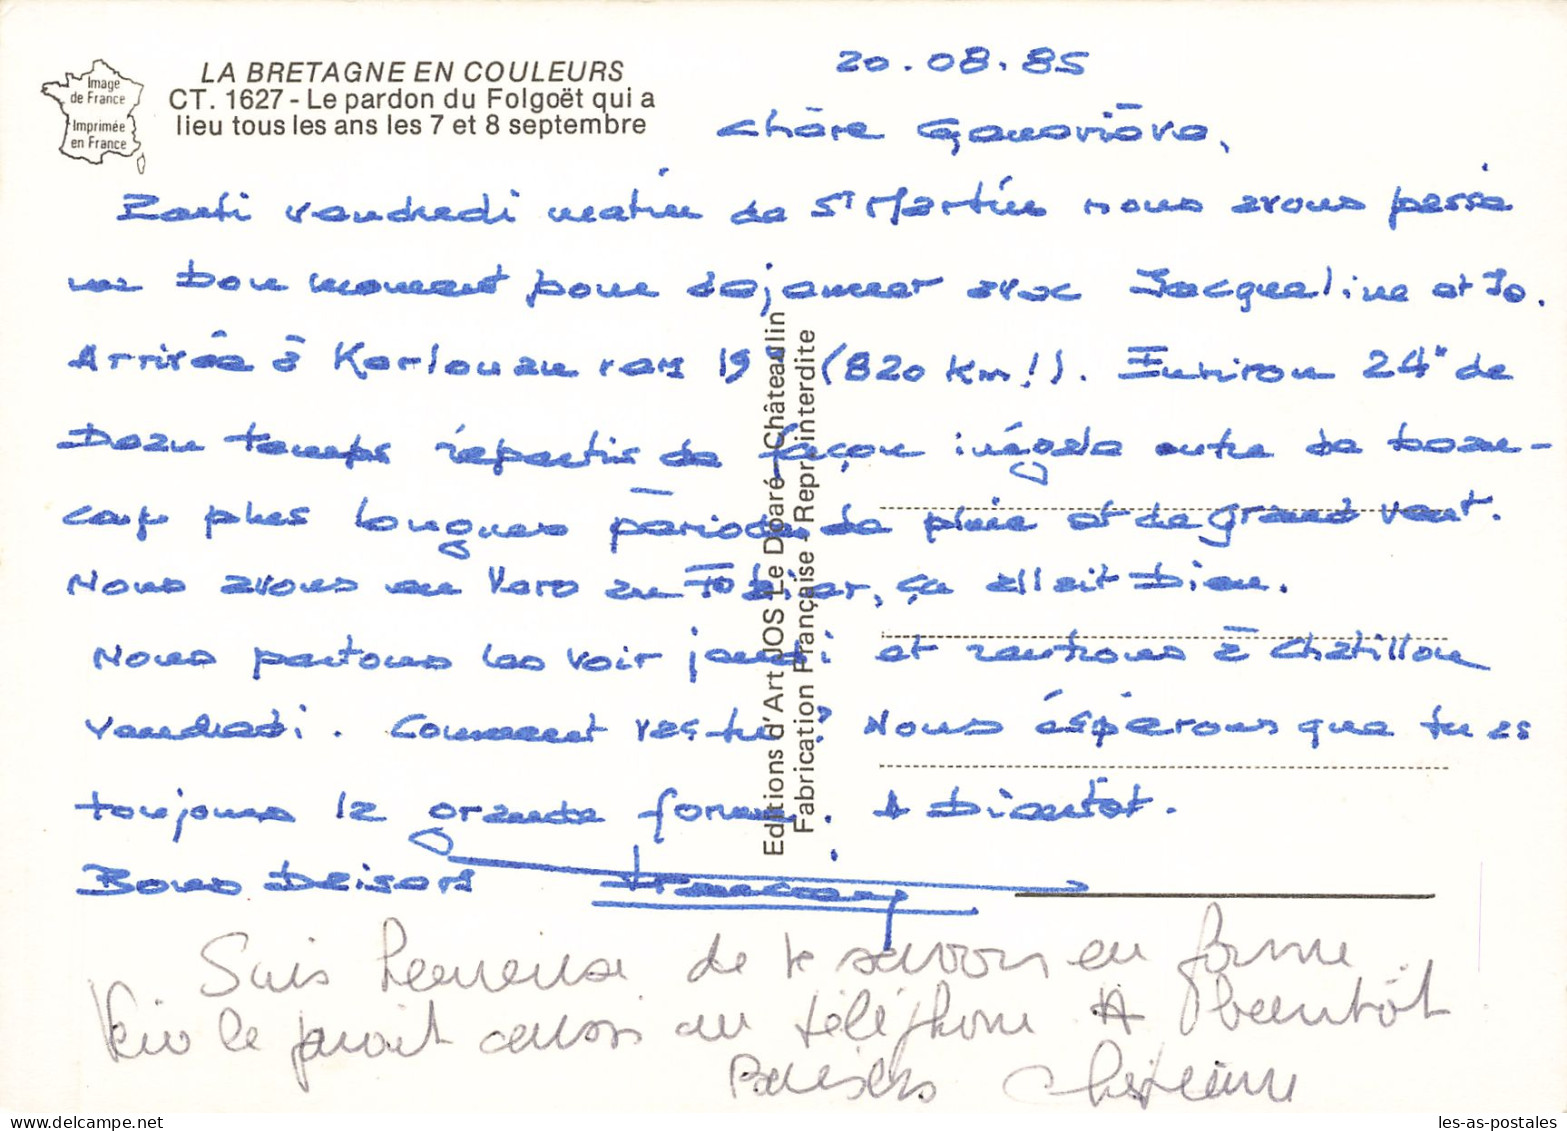 Image
de France
Imprimée
en France
LA BRETAGNE EN COULEURS
CT. 1627 - Le pardon du Folgoët qui a
lieu tous les ans les 7 et 8 septembre
20.08.85
Chère Geneviève,
Parti vendredi matin de St Martin nous avons passé
un bon moment pour déjeuner avec Jacqueline et Jo.
Arrivée à Kerlouan vers 19h (820 km!). Environ 24h de
beau temps répartis de façon inégale entre de beau-
coup plus longues périodes de pluie et de grand vent.
Nous avons eu Vero au ça allait bien.
Nous partons les voir jeudi et rentrons à Chatillon
vendredi. Comment vas tu? Nous éspérons que tu es
toujours la grande forme. A bientôt.
Bons baisers
Editions d'Art JOS Le Doaré-Châteaulin
Fabrication Française - Reprint interdite
Suis heureuse de te savoir en forme
le paroit aussi au téléphone A bientôt
Baisers Christiane
les-as-postales